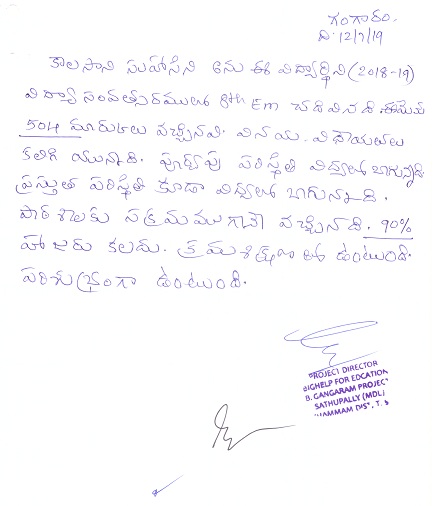 గంగారం.
ది: 12/7/19
కాలసాని సుహాసిని అను ఈ విద్యార్థిని (2018-19)
విద్యా సంవత్సరములు 8th Em చదివినది. ఈమెకు
504 మార్కులు వచ్చినవి. వినయ. విధేయతలు
కలిగి యున్నది. పూర్వపు పరిస్థితి విద్యలో బాగున్నది.
ప్రస్తుత పరిస్థితి కూడా విద్యలో బాగున్నది.
పాఠశాలకు సక్రమముగానే వచ్చినది. 90%
హాజరు కలదు. క్రమశిక్షణతో ఉంటుంది.
పరిశుభ్రంగా ఉంటుంది.
PROJECT DIRECTOR
BIGHELP FOR EDCATION
B. GANGARAM PROJECT
SATHUPALLY (MDL)